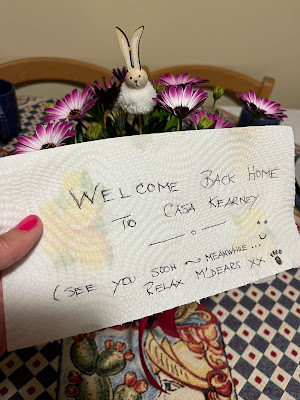 WELCOME BACK HOME
TO CASA KEARNEY
(SEE YOU SOON ~ MEANWHILE...
RELAX M'DEARS XX